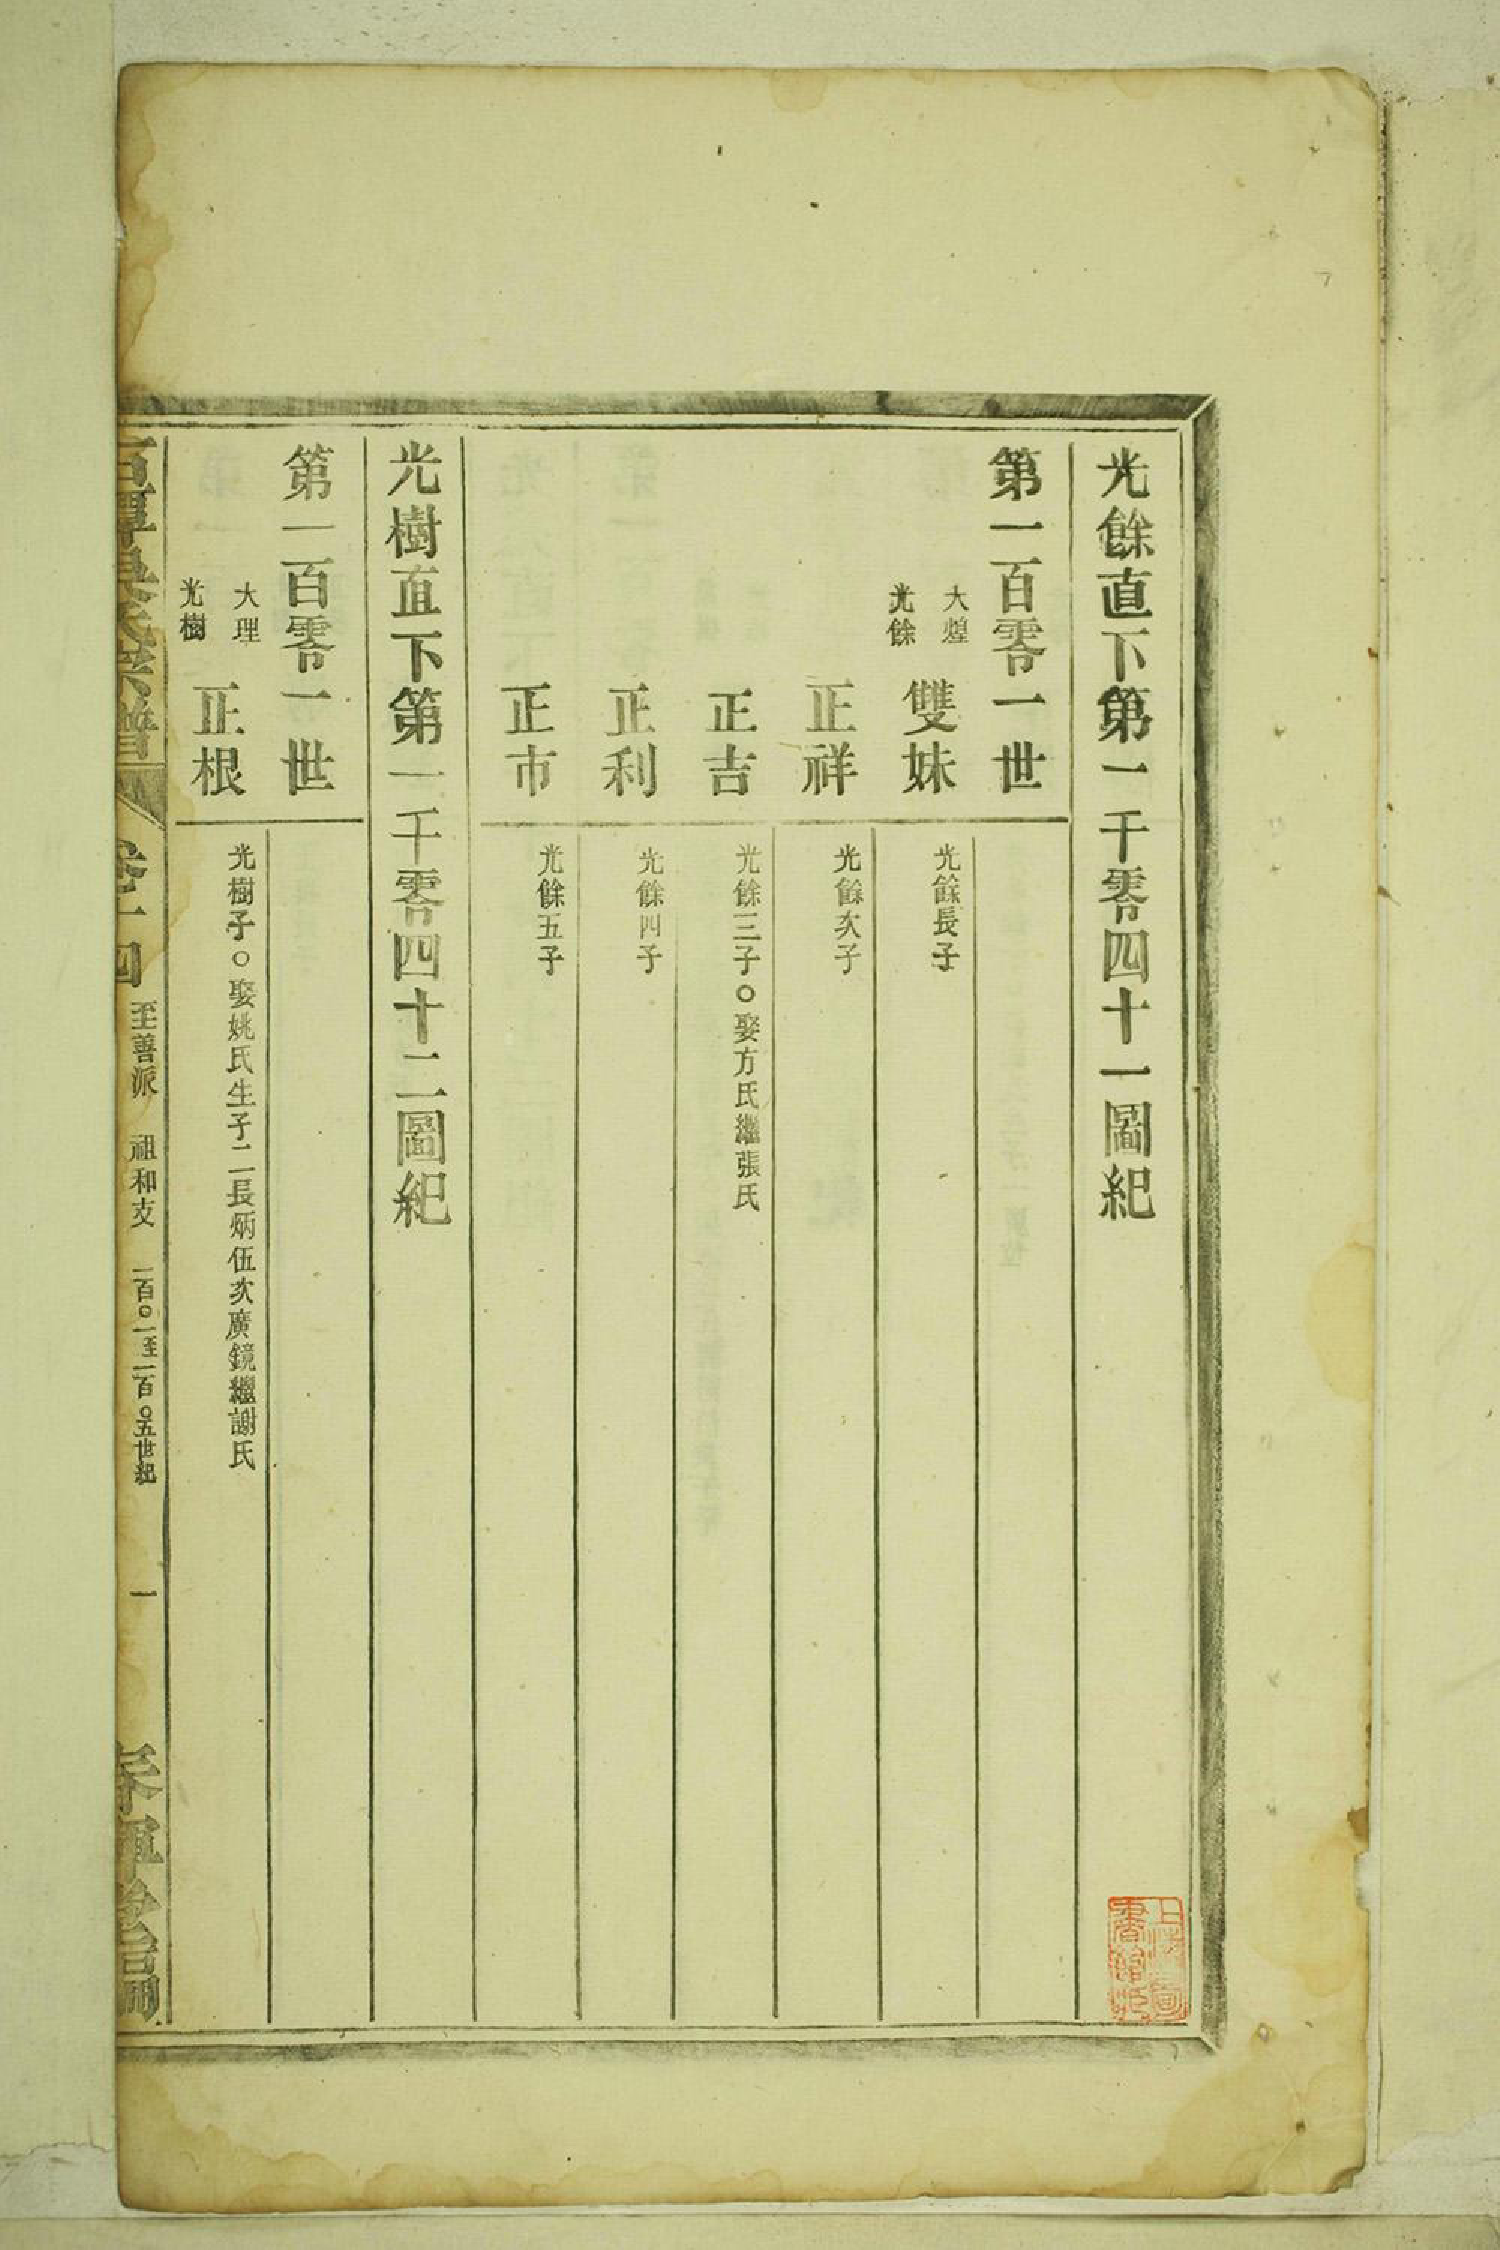 光餘直下第一千零四十一圖紀
第一百零一世
大煌
光餘
雙妹
光餘長子
正祥
光餘次子
正吉
光餘三子○娶方氏繼張氏
正利
光餘四子
正市
光餘五子
光樹直下第一千零四十二圖紀
第一百零一世
大理
光樹
正根
光樹子○娶姚氏生子二長炳伍次廣鏡繼謝氏
石潭吳氏宗譜
卷十四
至善派 祖和支 一百○一至一百○五世紀
一
春暉堂編
上海圖書館藏